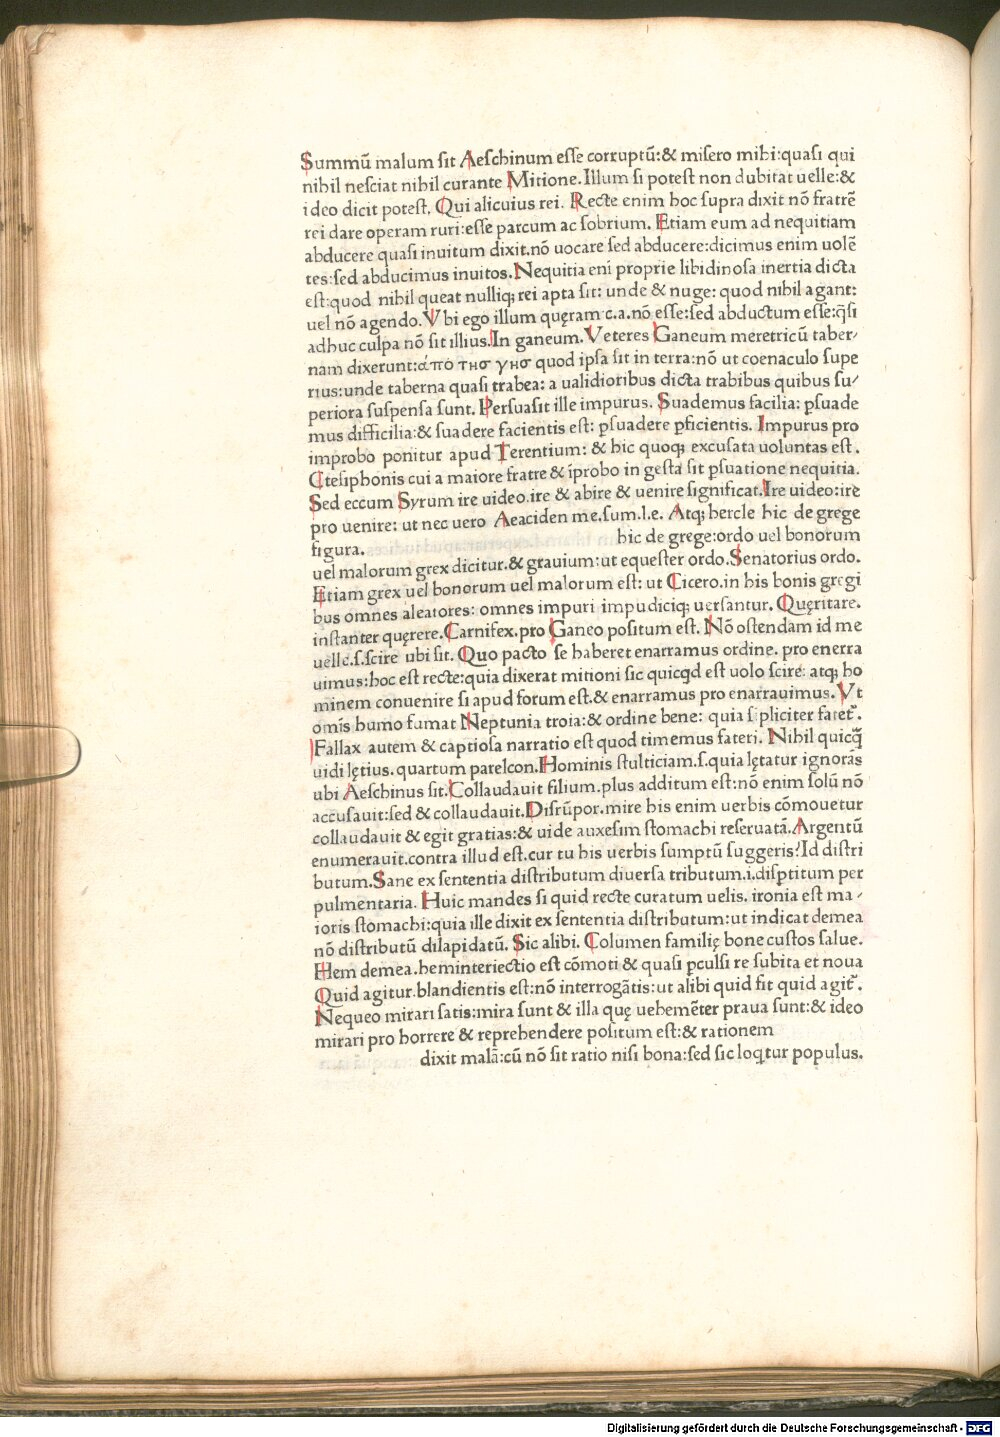 Summū malum sit Aeschinum esse corruptū:& misero mihi:quasi qui
nihil nesciat nihil curante Mitione.Illum si potest non dubitat uelle:&
ideo dicit potest. Qui alicuius rei. Recte enim hoc supra dixit nō fratrē
rei dare operam ruri:esse parcum ac sobrium. Etiam eum ad nequitiam
abducere quasi inuitum dixit.nō uocare sed abducere:dicimus enim uolē
tes:sed abducimus inuitos.Nequitia eni proprie libidinosa inertia dicta
est:quod nihil queat nulliq; rei apta sit: unde & nuge: quod nihil agant:
uel nō agendo.Vbi ego illum quęram c.a.nō esse:sed abductum esse:q̄si
adhuc culpa nō sit illius.In ganeum.Veteres Ganeum meretricū taber-
nam dixerunt:ἀπὸ τησ γησ quod ipsa sit in terra:nō ut coenaculo supe
rius:unde taberna quasi trabea: a ualidioribus dicta trabibus quibus su-
periora suspensa sunt. Persuasit ille impurus. Suademus facilia: ꝑsuade
mus difficilia:& suadere facientis est: ꝑsuadere ꝑficientis. Impurus pro
improbo ponitur apud Terentium: & hic quoq; excusata uoluntas est.
Ctesiphonis cui a maiore fratre & īprobo in gesta sit ꝑsuatione nequitia.
Sed eccum Syrum ire uideo.ire & abire & uenire significat.Ire uideo:ire
pro uenire: ut nec uero Aeaciden me.sum.l.e. Atq; hercle hic de grege
figura. hic de grege:ordo uel bonorum
uel malorum grex dicitur.& grauium:ut equester ordo.Senatorius ordo.
Etiam grex uel bonorum uel malorum est: ut Cicero.in his bonis gregi
bus omnes aleatores: omnes impuri impudiciq; uersantur. Quęritare.
instanter quęrere.Carnifex.pro Ganeo positum est. Nō ostendam id me
uelle.s.scire ubi sit. Quo pacto se haberet enarramus ordine. pro enerra
uimus:hoc est recte:quia dixerat mitioni sic quicꝗd est uolo scire: atq; ho
minem conuenire si apud forum est.& enarramus pro enarrauimus. Vt
omīs humo fumat Neptunia troia:& ordine bene: quia sīpliciter fatet᷑.
Fallax autem & captiosa narratio est quod timemus fateri. Nihil quicꝗ̄
uidi lętius. quartum parelcon.Hominis stulticiam.s.quia lętatur ignorās
ubi Aeschinus sit.Collaudauit filium.plus additum est:nō enim solū nō
accusauit:sed & collaudauit.Disrūpor.mire his enim uerbis cōmouetur
collaudauit & egit gratias:& uide auxesim stomachi reseruatā.Argentū
enumerauit.contra illud est.cur tu his uerbis sumptū suggeris?Id distri
butum.Sane ex sententia distributum diuersa tributum.i.disꝑtitum per
pulmentaria. Huic mandes si quid recte curatum uelis. ironia est ma-
ioris stomachi:quia ille dixit ex sententia distributum:ut indicat demea
nō distributū dilapidatū. Sic alibi. Columen familię bone custos salue.
Hem demea.heminteriectio est cōmoti & quasi ꝑculsi re subita et noua
Quid agitur.blandientis est:nō interrogātis:ut alibi quid fit quid agit᷑.
Nequeo mirari satis:mira sunt & illa quę uehemēter praua sunt:& ideo
mirari pro horrere & reprehendere positum est:& rationem
dixit malā:cū nō sit ratio nisi bona:sed sic loꝗtur populus.
Digitalisierung gefördert durch die Deutsche Forschungsgemeinschaft - DFG